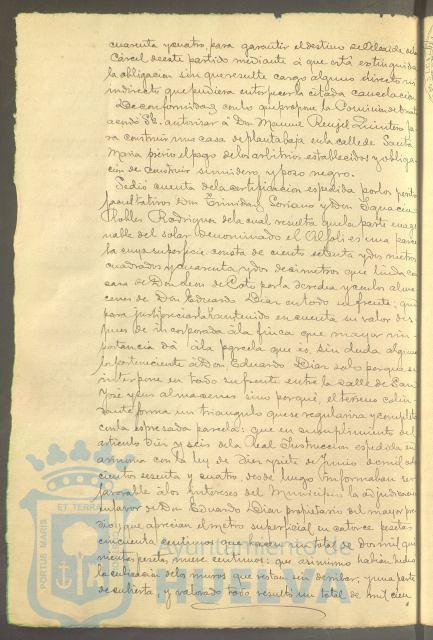 cuarenta y cuatro, para garantir el destino de Alcaide de la
Cárcel de este partido mediante á que está extinguida
la obligacion sin que resulte cargo alguno directo ni
indirecto que pudiera entorpecer la citada cancelacion
De conformidad con lo que propone la Comision de
acordó S.E. autorizar á Don Manuel Rengel Quintero pa
ra construir una casa de planta baja en la calle de Santa
Maria previo el pago de los arbitrios establecidos y obliga
cion de construir sumidero y pozo negro.
Se dió cuenta de la certificacion expedida por los peritos
facultativos Don Trinidad Soriano y Don Ignacio
Robles Rodriguez de la cual resulta que la parte
del solar denominado el Alfoli es una parce
la cuya superficie consta de ciento setenta y dos metros
cuadrados y cuarenta y dos decimetros que linda
casa de Don de Coto por la derecha y con los alma
cenes de Don Eduardo Diaz en todo su frente; que
para justipreciarla han tenido en cuenta su valor des
pues de incorporada á la finca que mayor im
portancia dá á la parcela que es, sin duda alguna
la perteneciente á Don Eduardo Diaz no solo porque se
interpone en todo su frente entre la calle de San
José y sus almacenes sino porque el terreno colin
dante forma un triangulo que se regulariza y completa
con la expresada parcela: que en cumplimiento del
articulo diez y seis de la Real Instruccion expedida en
armonia con la ley de diez y siete de Junio de mil ocho
cientos sesenta y cuatro, desde luego informaban ser
favorable á los intereses del Municipio la adjudicacion
en favor de Don Eduardo Diaz propietario del mayor pre
dio y que aprecian el metro superficial en catorce pesetas
cincuenta centimos que hacen un total de dos mil qui
nientas pesetas, nueve centimos: que asimismo habian hecho
la cubicacion de los muros que restan sin derribar, y una parte
de cubierta, y valorado todo resultó un total de mil cien
PORTUS MARIS
ET TERRAE
Ayuntamiento de
HUELVA